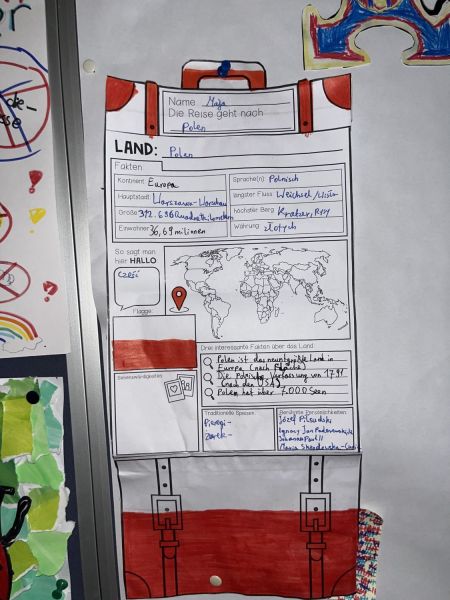 Name Maja
Die Reise geht nach
Polen
LAND: Polen
Fakten
Kontinent Europa
Hauptstadt Warszawa-Warschau
Größe 312.696 Quadratkilometern
Einwohner 36,69 milionen
Sprache(n) Polnisch
längster Fluss Weichsel/Wisła
höchster Berg Rysy
Währung złotych
So sagt man
hier HALLO
cześć
Flagge
Drei interessante Fakten über das Land:
Polen ist das neuntgrößte Land in
Europa (nach Fläche)
Die Polnische Verfassung von 1791
(nach der USA)
Polen hat über 7.000 Seen
Sehenswürdigkeiten
Traditionelle Speisen
Pierogi-
Żurek-
Berühmte Persönlichkeiten
Józef Piłsudski
Ignacy Jan Paderewski
Johannes Paul II
Maria Skłodowska-